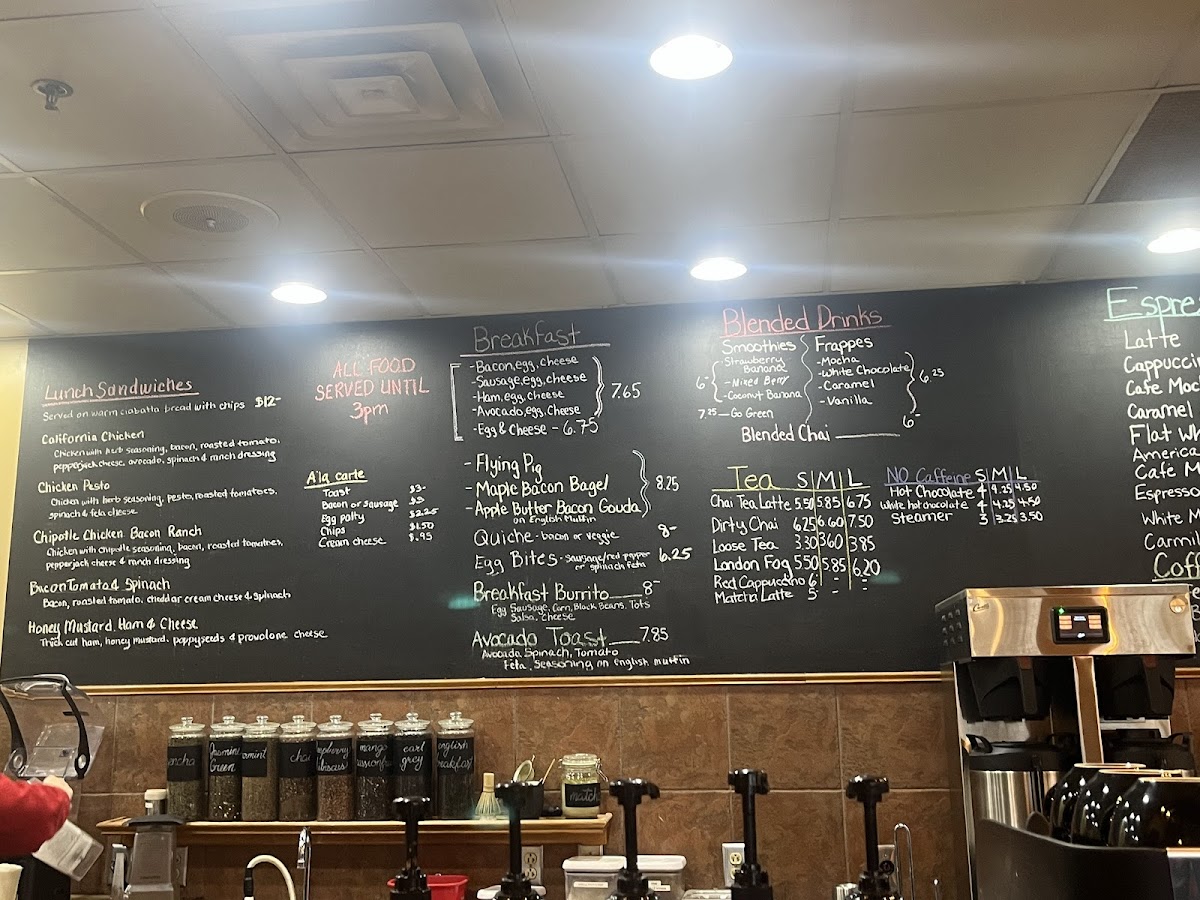 Lunch Sandwiches
Served on warm ciabatta bread with chips $12-
California Chicken
Chicken with herb seasoning, bacon, roasted tomato,
pepperjack cheese, avocado, spinach & ranch dressing
Chicken Pesto
Chicken with herb seasoning, pesto, roasted tomatoes,
spinach & feta cheese
Chipotle Chicken Bacon Ranch
Chicken with chipotle seasoning, bacon, roasted tomatoes,
pepperjack cheese & ranch dressing
Bacon Tomato & Spinach
Bacon, roasted tomato, cheddar cream cheese & spinach
Honey Mustard, Ham & Cheese
Thick cut ham, honey mustard, poppyseeds & provolone cheese
ALL FOOD
SERVED UNTIL
3pm
A'la carte
Toast $3-
Bacon or sausage $3
Egg patty $2.25
Chips $1.50
Cream cheese $.95
Breakfast
- Bacon, egg, cheese
- Sausage, egg, cheese
- Ham, egg, cheese
- Avocado, egg, cheese
7.65
- Egg & Cheese - 6.75
- Flying Pig
- Maple Bacon Bagel
- Apple Butter Bacon Gouda
on English Muffin
8.25
Quiche - bacon or veggie 8-
Egg Bites - sausage/red pepper 6.25
or spinach feta
Breakfast Burrito 8-
Egg, Sausage, Corn, Black Beans, Tots
Salsa, Cheese
Avocado Toast 7.85
Avocado, Spinach, Tomato
Feta, Seasoning on english muffin
Blended Drinks
Smoothies
- Strawberry
Banana
- Mixed Berry
- Coconut Banana
6-
7.25 - Go Green
Frappes
- Mocha
- White Chocolate
- Caramel
- Vanilla
6.25
Blended Chai 6-
Tea S M L
Chai Tea Latte 5.50 5.85 6.75
Dirty Chai 6.25 6.60 7.50
Loose Tea 3.30 3.60 3.85
London Fog 5.50 5.85 6.20
Red Cappuccino 6 - -
Matcha Latte 5- - -
NO Caffeine S M L
Hot Chocolate 4 4.25 4.50
White hot chocolate 4 4.25 4.50
Steamer 3 3.25 3.50
Espre
Latte
Cappucci
Cafe Moc
Caramel
Flat Wh
America
Cafe M
Espresso
White M
Carmil
Coff
encha
Jasmine
Green
chai
mango
earl
grey
english
breakfast
matc